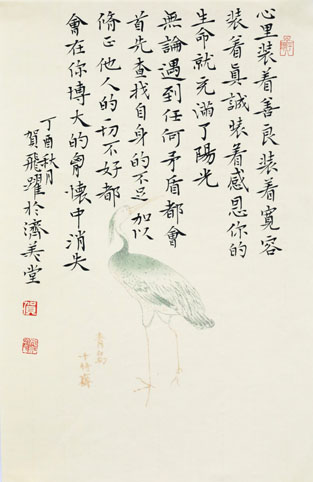 心里装着善良装着寬容
装着真誠装着感恩你的
生命就充滿了陽光
無論遇到任何矛盾都會
首先查找自身的不足加以
脩正他人的一切不好都
會在你博大的胸懷中消失
丁酉秋月
賀飛躍於濟美堂